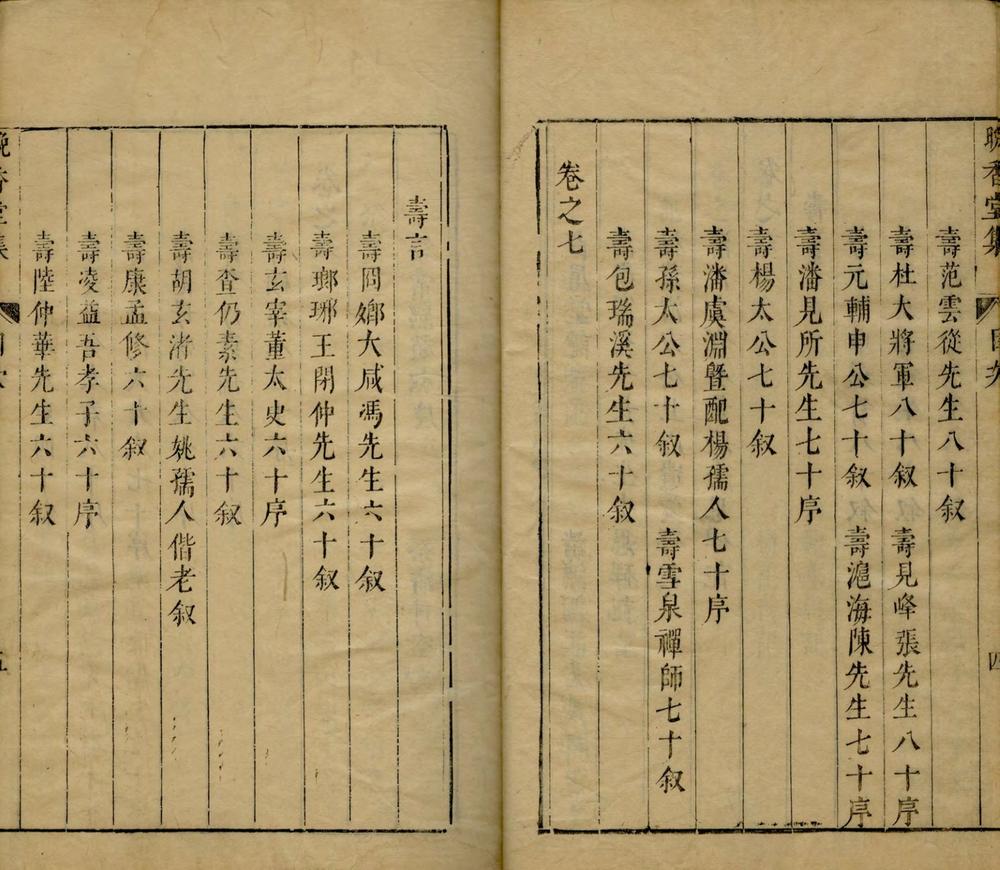 晚香堂集
四
壽范雲從先生八十叙
壽杜大將軍八十叙 壽見峰張先生八十序
壽元輔申公七十叙 壽滬海陳先生七十序
壽潘見所先生七十序
壽楊太公七十叙
壽潘虞淵曁配楊孺人七十序
壽孫太公七十叙 壽雪泉禪師七十叙
壽包瑞溪先生六十叙
卷之七
壽言
壽冏鄉大咸馮先生六十叙
壽瑯琊王閑仲先生六十叙
壽玄宰董太史六十序
壽查仍素先生六十叙
壽胡玄渚先生姚孺人偕老叙
壽康孟修六十叙
壽凌益吾孝子六十序
壽陸仲華先生六十叙
晚香堂集
五